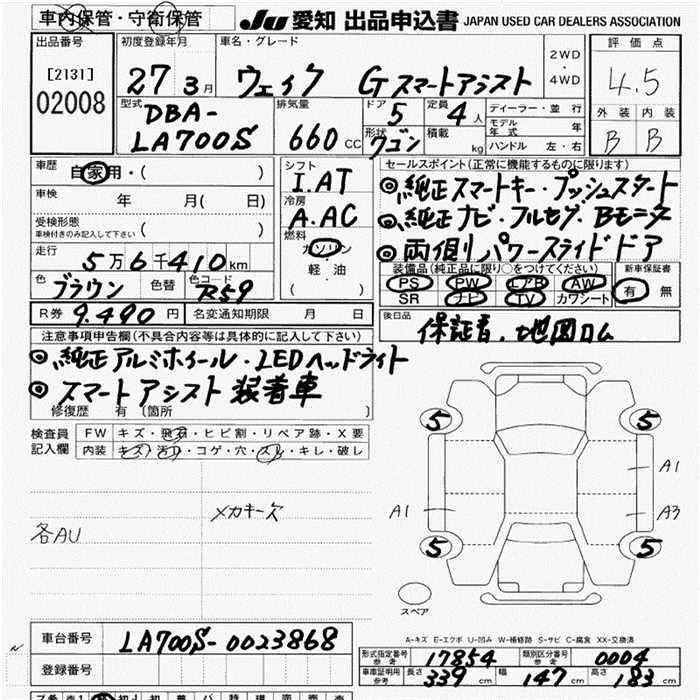 車内保管・守衛保管 JU 愛知 出品申込書 JAPAN USED CAR DEALERS ASSOCIATION
出品番号 初度登録年月 車名・グレード 2WD・4WD 評価点
[2131]
02008 27 3月 ウェイク Gスマートアシスト 4.5
型式 排気量 ドア 定員 ディーラー・並行 外装 内装
DBA-LA700S 660cc 5 4人 モデル年式 年 B B
形状 ワゴン 積載 kg ハンドル 左・右
車歴 自家用・( ) シフト I.AT セールスポイント(正常に機能するものに限ります)
車検 年 月( 日) 冷房 A.AC ◎純正スマートキー・プッシュスタート
受検形態 ( ) ◎純正ナビ・フルセグ・Bモニター
車検付きのみ記入して下さい 燃料 ガソリン 軽油 ( ) ◎両側パワースライドドア
走行 5万6千410km
装備品(純正品に限り○をつけてください) 新車保証書
色 ブラウン 色替 色コード R59 PS PW エアB AW 有 無
SR ナビ TV カワシート
R券 9.490円 名変通知期限 月 日 後日品 保証書.地図ROM
注意事項申告欄(不具合内容等は具体的に記入して下さい)
◎純正アルミホイール・LEDヘッドライト
◎スマートアシスト装着車
修復歴 有 〔箇所 〕
検査員記入欄 FW キズ・飛石・ヒビ割・リペア跡・X要
内装 キズ・汚れ・コゲ・穴・スレ・キレ・破レ
各AU メカキー欠
5 5
A1
A1 A3
5 5
スペア
A-キズ E-エクボ U-凹み W-補修跡 S-サビ C-腐食 XX-交換済
車台番号 LA700S-0023868
型式指定番号 参考 17854 類別区分番号 参考 0004
登録番号 車庫証明用 参考 長さ 339cm 幅 147cm 高さ 183cm